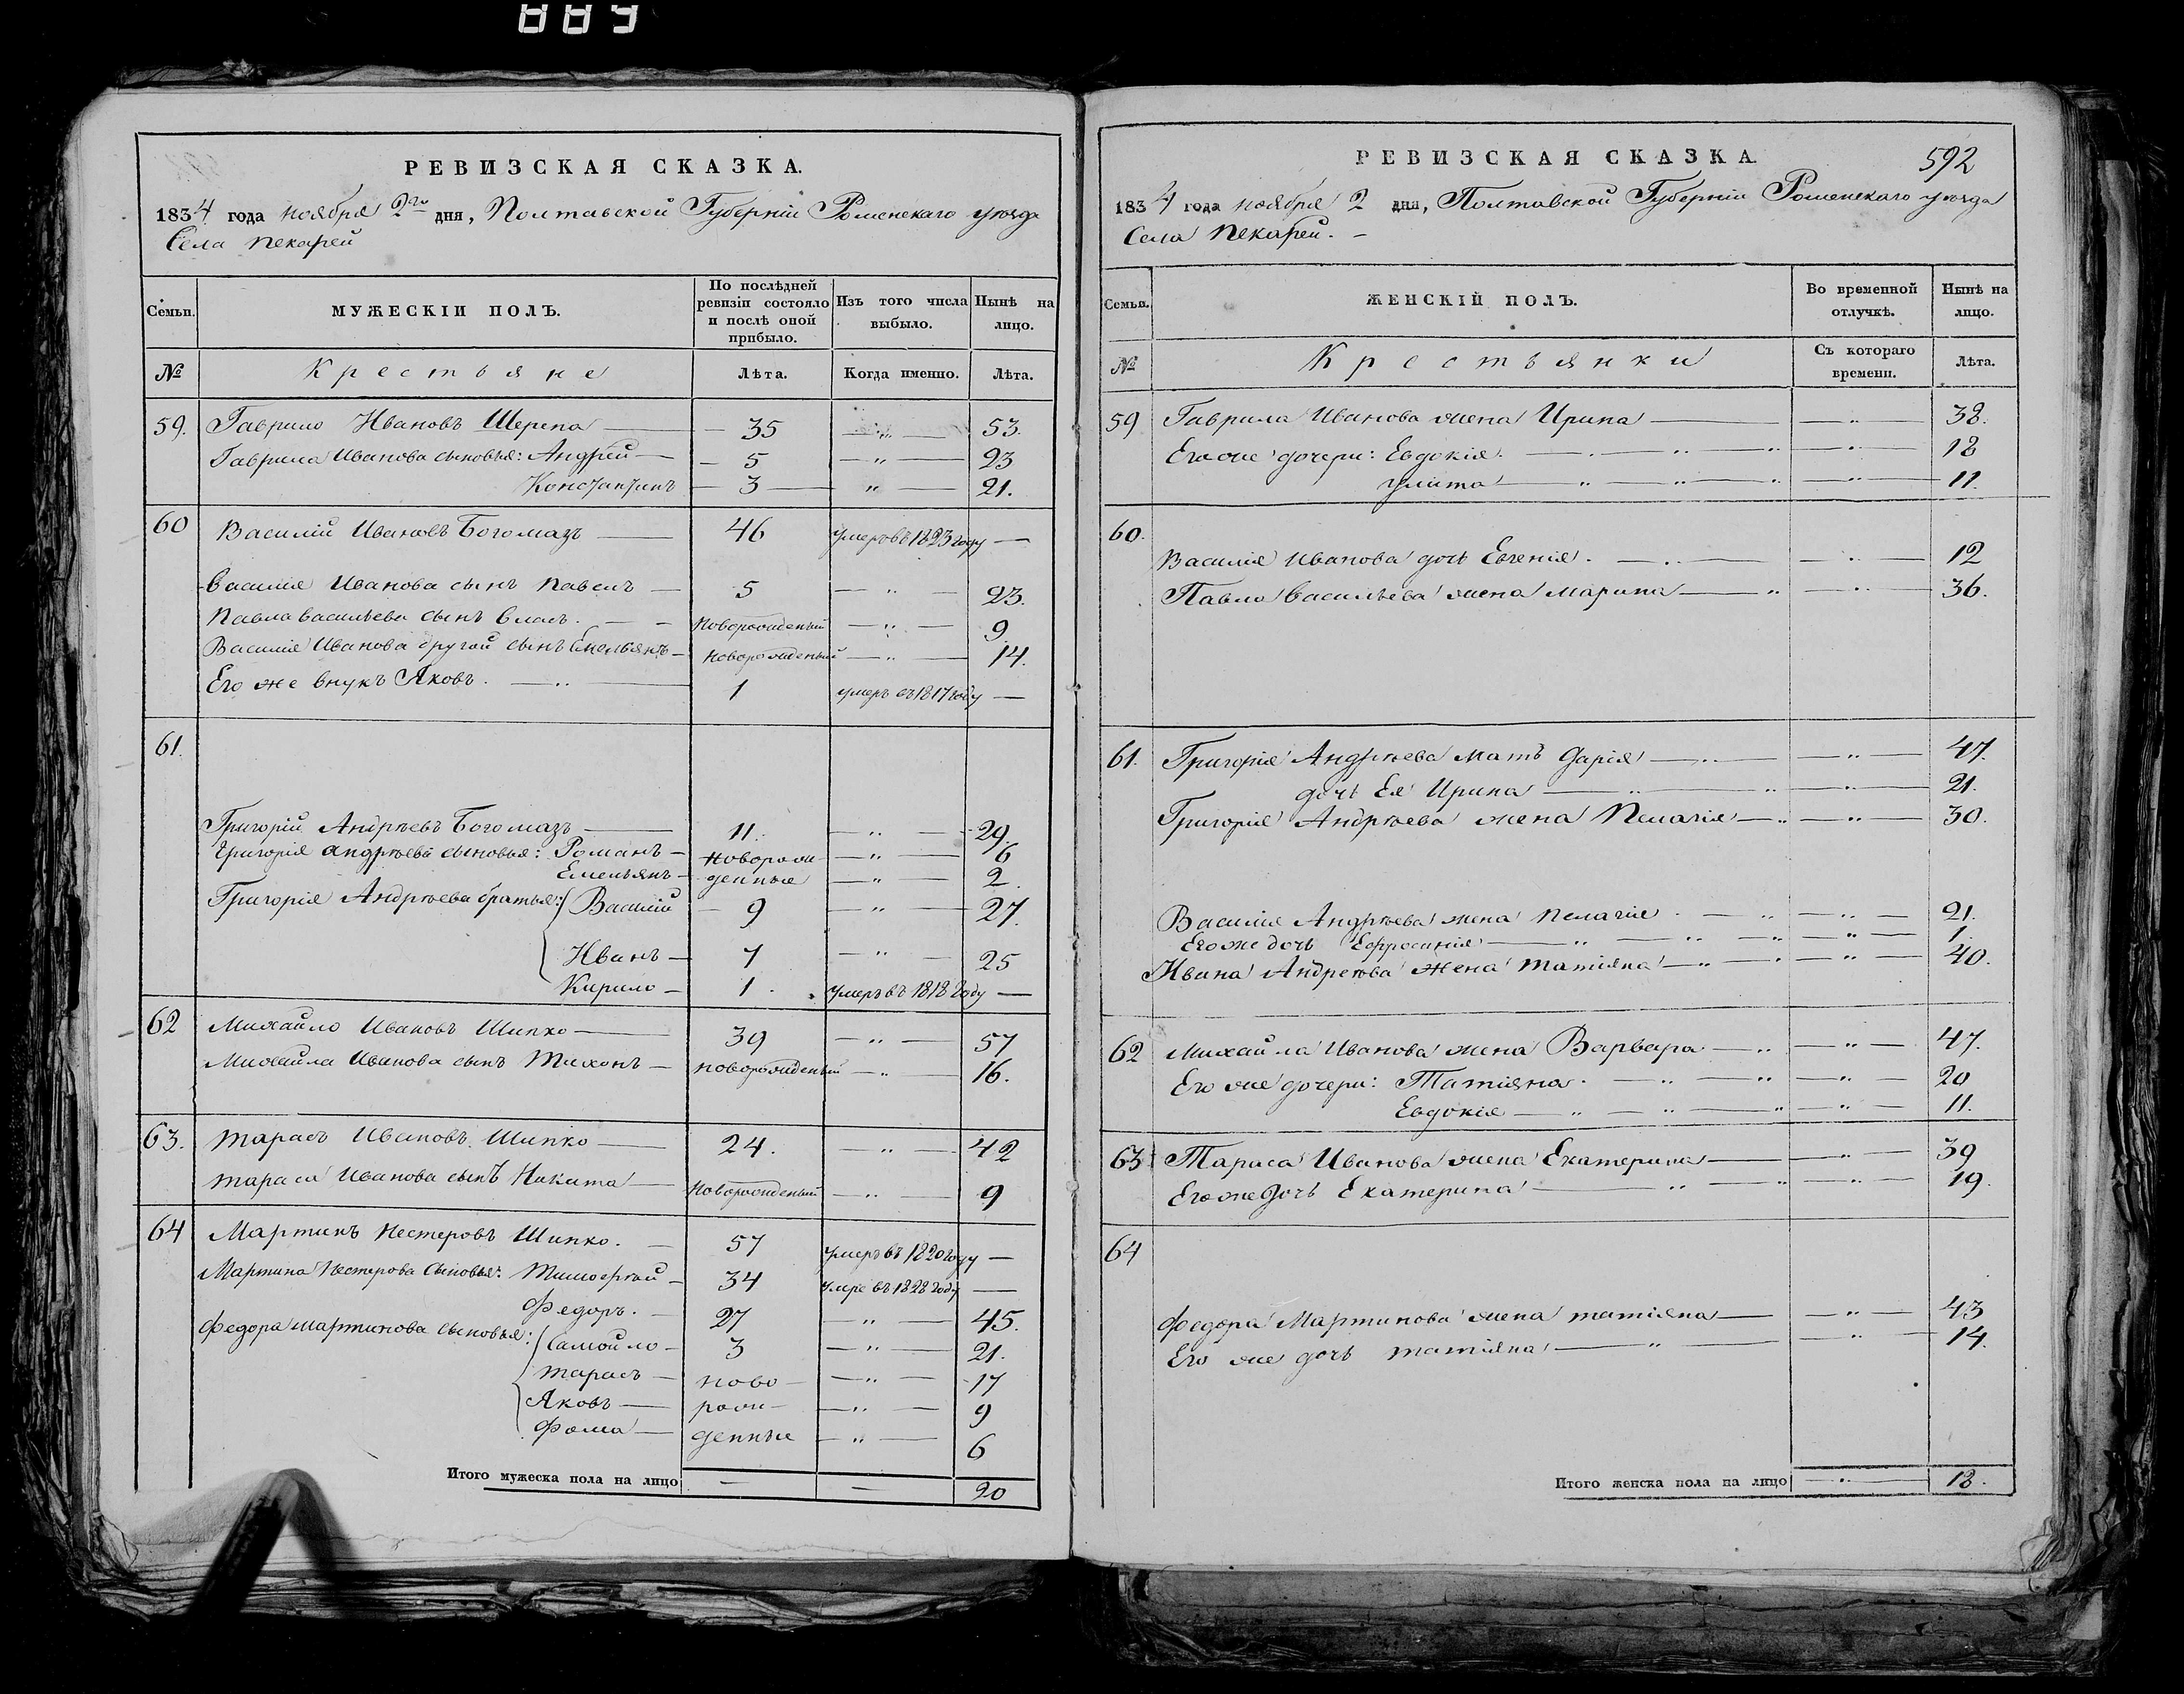 889
РЕВИЗСКАЯ СКАЗКА.
1834 года ноября 2го дня, Полтавской Губернiи Роменскаго уѣзда
Села Пекарей
Семьи.
МУЖЕСКІЙ ПОЛЪ.
По послѣдней ревизіи состояло и послѣ оной прибыло.
Изъ того числа выбыло.
Нынѣ на лицо.
№
Крестьяне
Лѣта.
Когда именно.
Лѣта.
59. Гаврило Ивановъ Шерепа — 35 — „ — 53.
Гаврила Иванова сыновья: Андрей — 5 — „ — 23
Константинъ — 3 — „ — 21.
60 Василій Ивановъ Богомазъ — 46 умеръ въ 1823 году —
Василія Иванова сынъ Павелъ — 5 — „ — 23.
Павла Васильева сынъ Власъ. — новорожденый — „ — 9
Василія Иванова другой сынъ Емельянъ — новорожденый — „ — 14.
Его же внукъ Яковъ. — „ — 1 умеръ въ 1817 году —
61.
Григорій Андрѣевъ Богомазъ — 11. — „ — 29.
Григорія Андрѣева сыновья: Романъ — новорож- — „ — 6
Емельянъ — денные — „ — 2.
Григорія Андрѣева братья: Василій — 9 — „ — 27.
Иванъ — 7 — „ — 25
Кирило — 1. умеръ въ 1818 году —
62 Михайло Ивановъ Шипко — 39 — „ — 57
Михайла Иванова сынъ Тихонъ — новорожденый — „ — 16.
63. Тарасъ Ивановъ Шипко — 24. — „ — 42
Тараса Иванова сынъ Никита — новорожденый — „ — 9
64 Мартинъ Нестеровъ Шипко. — 57 умеръ въ 1820 году —
Мартина Нестерова сыновья: Тимофей — 34 умре въ 1828 году —
Федоръ. — 27 — „ — 45.
Федора Мартинова сыновья: Самойло — 3 — „ — 21.
Тарасъ — ново- — „ — 17
Яковъ — рож- — „ — 9
Фома — денные — „ — 6
Итого мужеска пола на лицо — — 20
РЕВИЗСКАЯ СКАЗКА.
592
1834 года ноября 2 дня, Полтавской Губернiи Роменскаго уѣзда
Села Пекарей. —
Семьи.
ЖЕНСКІЙ ПОЛЪ.
Во временной отлучкѣ.
Нынѣ на лицо.
№
Крестьянки
Съ котораго времени.
Лѣта.
59 Гаврила Иванова жена Ирина — „ — 38.
Его же дочери: Евдокія. — „ — 18
Улита — „ — 11.
60.
Василія Иванова дочь Евгенія. — „ — 12
Павла Васильева жена Марина — „ — 36.
61. Григорія Андрѣева мать Дарія — „ — 47.
дочь Ея Ирина — „ — 21.
Григорія Андрѣева жена Пелагія — „ — 30.
Василія Андрѣева жена Пелагія — „ — 21.
Его же дочь Ефросинія — „ — 1.
Ивана Андрѣева жена Татіяна — „ — 40.
62 Михайла Иванова жена Варвара — „ — 47.
Его же дочери: Татіяна. — „ — 20
Евдокія — „ — 11.
63 Тараса Иванова жена Екатерина — „ — 39
Его же дочь Екатерина — „ — 19.
64
Федора Мартинова жена Татіяна — „ — 43
Его же дочь Татіяна — „ — 14.
Итого женска пола на лицо — „ — 18.